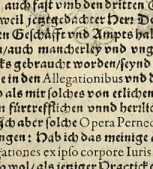 auch fast vmb den dritten
weil jetztgedachter Herr D
en Geschäfft vnd Ampts hal
/auch mancherley vnd vng
ks gebraucht worden/seynd
e in den Allegationibus vnd d
d als mir solches von etlichen
n fürtrefflichen vnnd herzlic
ch aber solche Opera Pernec
ngen: Hab ich das meinige
gationes ex ipso corpore Iuris